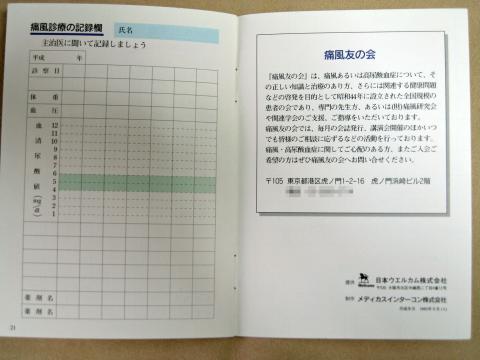 痛風診療の記録欄
氏名
主治医に聞いて記録しましょう
平成 年
診察日
体重
血圧
血清尿酸値(mg/dl)
12
11
10
9
8
7
6
5
4
3
2
1
薬剤名
薬剤名
21
痛風友の会
『痛風友の会』は、痛風あるいは高尿酸血症について、そ
の正しい知識と治療のあり方、さらには関連する健康問題
などの啓発を目的として昭和44年に設立された全国規模の
患者の会であり、専門の先生方、あるいは(財)痛風研究会
や関連学会のご支援、ご指導をいただいております。
痛風友の会では、毎月の会誌発行、講演会開催のほかいつ
でも皆様のご相談に応ずるなどの活動を行っております。
痛風・高尿酸血症に関してご心配のある方、またご入会ご
希望の方はぜひ痛風友の会へお問い合せください。
〒105 東京都港区虎ノ門1-2-16 虎ノ門浜崎ビル2階
提供 Wellcome 日本ウエルカム株式会社
制作 メディカスインターコン株式会社